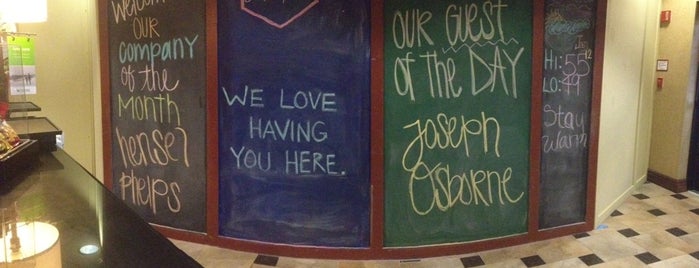 Welcome
OUR
COMPANY
OF the
MONTH
hensel
Phelps
WE LOVE
HAVING
YOU HERE.
OUR GUEST
OF the DAY
Joseph
Osborne
Hi: 55
Lo:
Stay
Warm